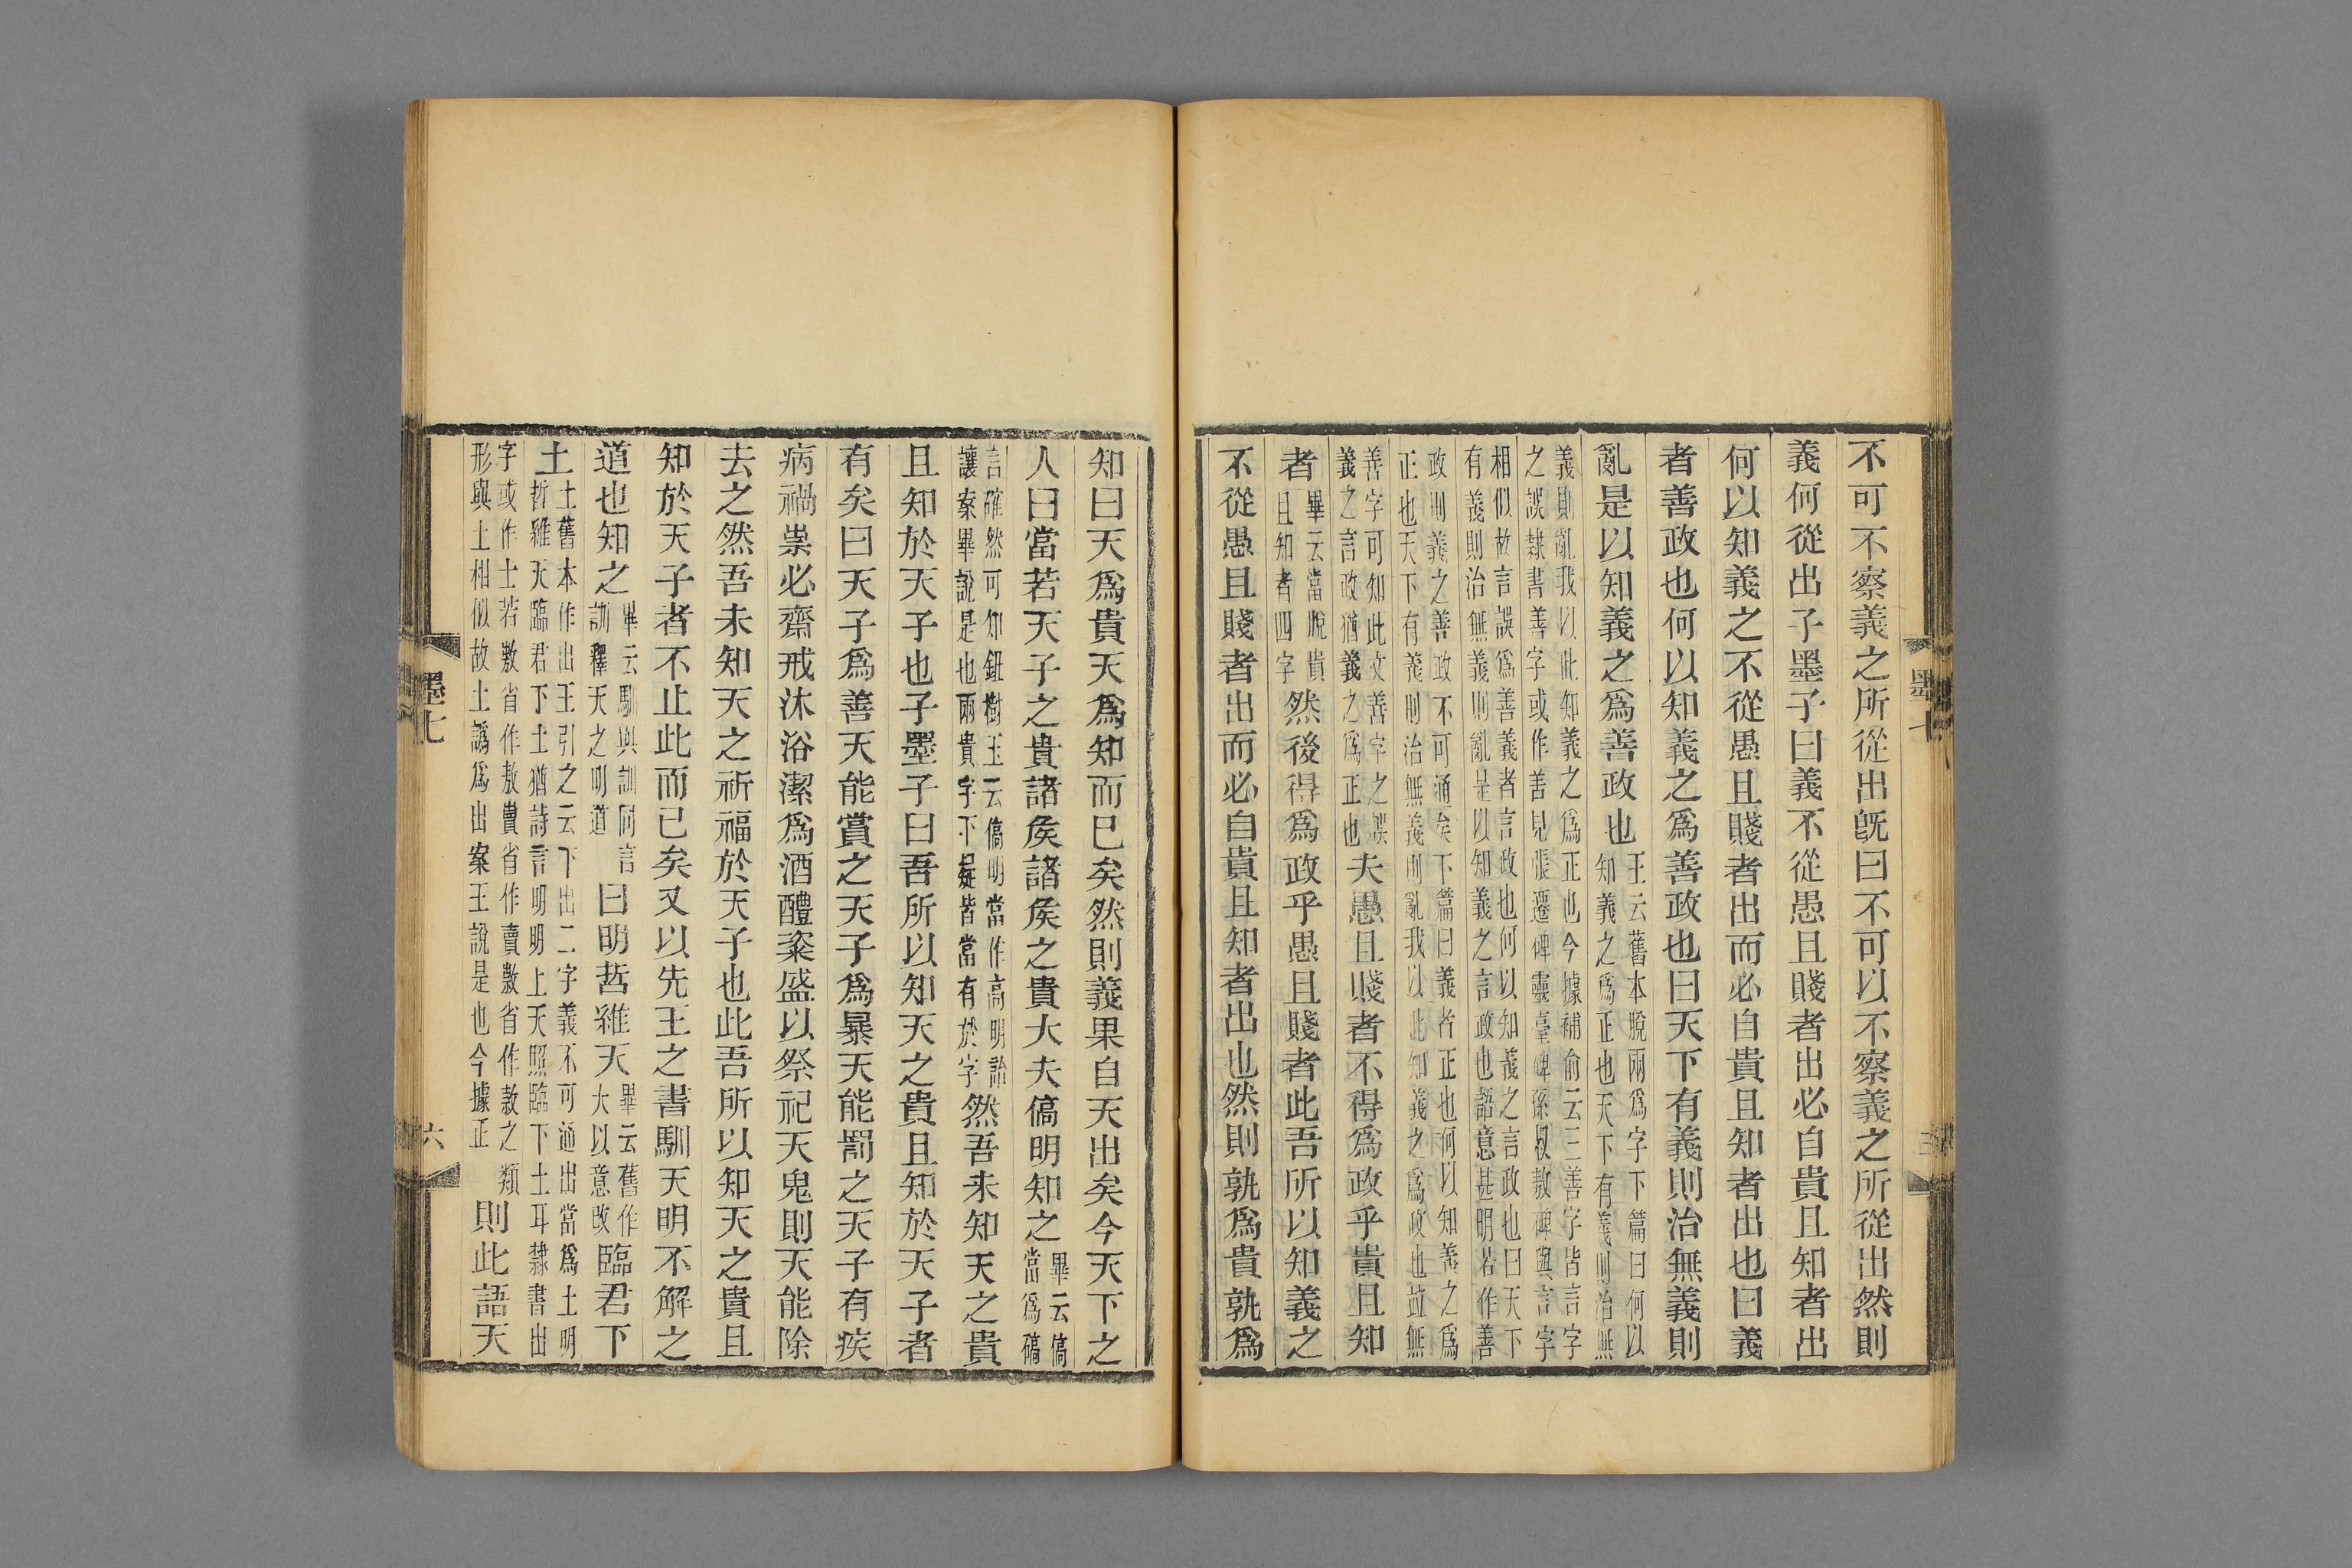 墨七
不可不察義之所從出既曰不可以不察義之所從出然則
義何從出子墨子曰義不從愚且賤者出必自貴且知者出
何以知義之不從愚且賤者出而必自貴且知者出也曰義
者善政也何以知義之爲善政也曰天下有義則治無義則
亂是以知義之爲善政也王云舊本脫兩爲字下篇曰何以
知義之爲正也天下有義則治無
義則亂我以此知義之爲正也今據補俞云三善字皆言字
之誤隸書善字或作善見張遷碑靈臺碑孫叔敖碑與言字
相似故言誤爲善義者言政也何以知義之言政也曰天下
有義則治無義則亂是以知義之言政也語意甚明若作善
政則義之善政不可通矣下篇曰義者正也何以知義之爲
正也天下有義則治無義則亂我以此知義之爲政也竝無
善字可知此文善字之誤
義之言政猶義之爲正也夫愚且賤者不得爲政乎貴且知
者畢云當脫貴
且知者四字然後得爲政乎愚且賤者此吾所以知義之
不從愚且賤者出而必自貴且知者出也然則孰爲貴孰爲
知曰天爲貴天爲知而已矣然則義果自天出矣今天下之
人曰當若天子之貴諸矦諸矦之貴大夫傐明知之畢云傐
當爲碻
言確然可知鈕樹玉云傐明當作高明詒
讓案畢說是也兩貴字下疑皆當有於字然吾未知天之貴
且知於天子也子墨子曰吾所以知天之貴且知於天子者
有矣曰天子爲善天能賞之天子爲暴天能罰之天子有疾
病禍祟必齋戒沐浴潔爲酒醴粢盛以祭祀天鬼則天能除
去之然吾未知天之祈福於天子也此吾所以知天之貴且
知於天子者不止此而已矣又以先王之書馴天明不解之
道也知之畢云馴與訓同言
訓釋天之明道曰明哲維天畢云舊作
大以意改臨君下
土土舊本作出王引之云下出二字義不可通出當爲土明
哲維天臨君下土猶詩言明明上天照臨下土耳隸書出
字或作士若敷省作敖賣省作賣敷省作款之類
形與土相似故土譌爲出案王說是也今據正則此語天
墨七
六